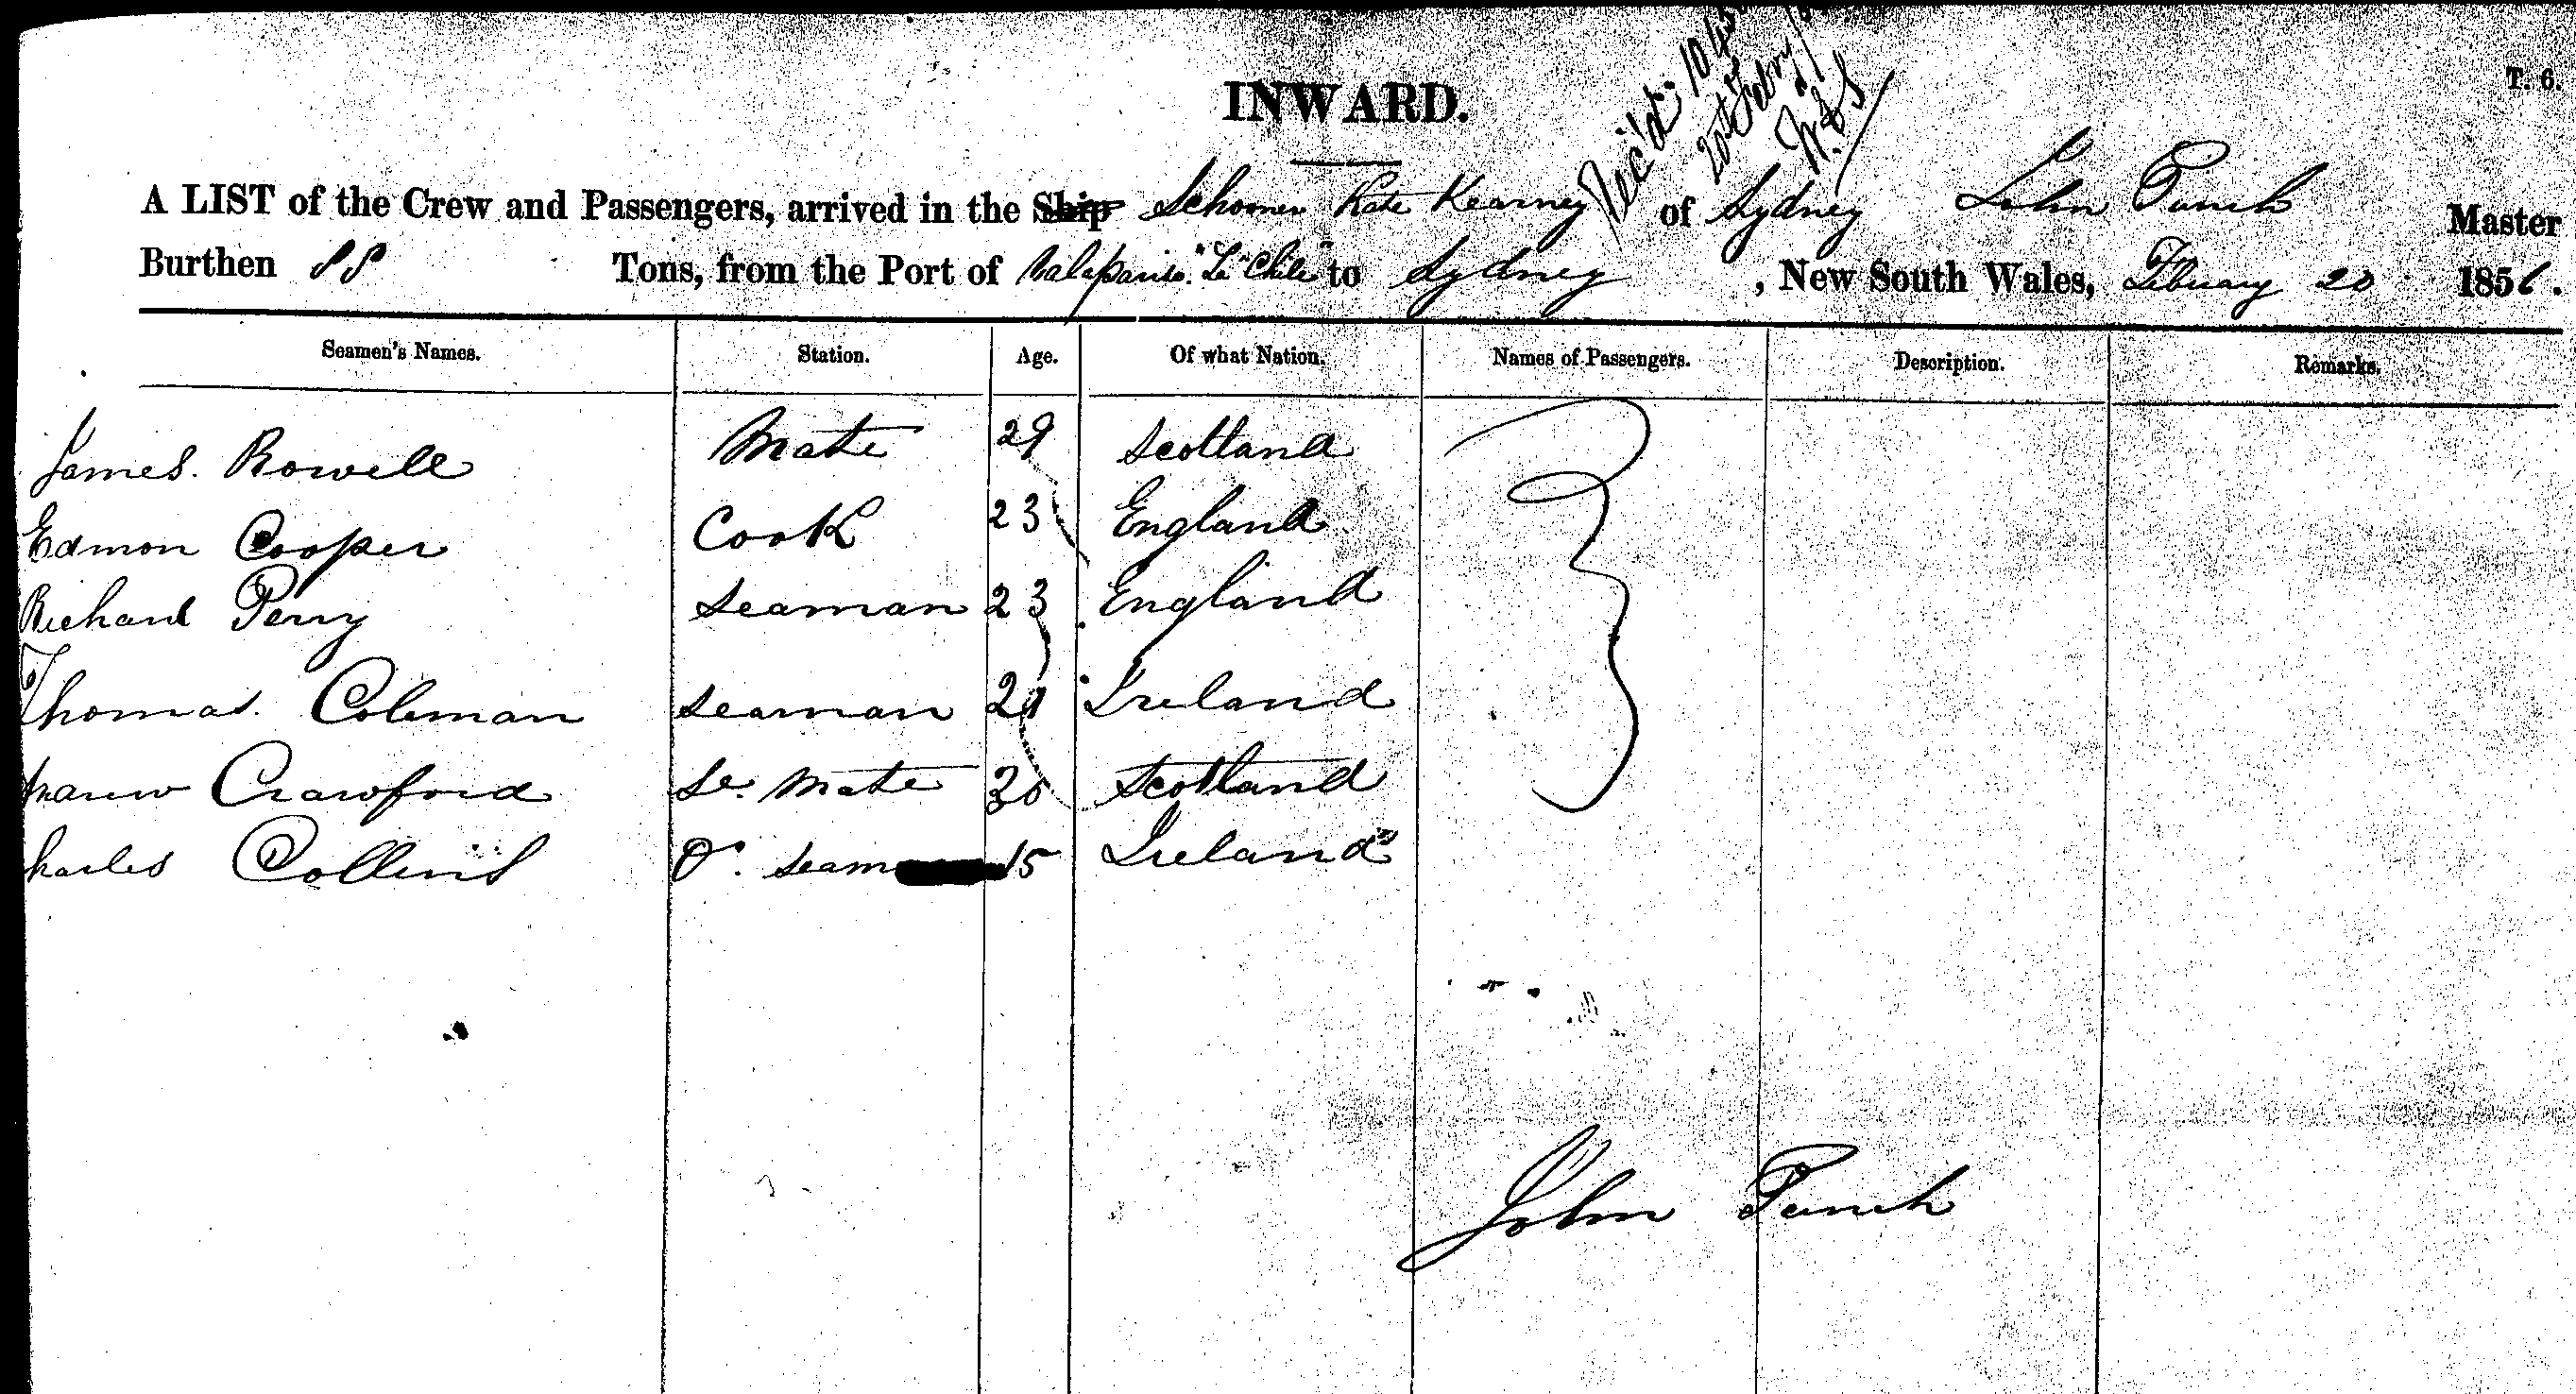 T. 6.
INWARD.
Rec'd. 10 45
20th Febry
A LIST of the Crew and Passengers, arrived in the Ship Schooner Kate Kearney of Sydney John Punch Master
Burthen 88 Tons, from the Port of Valapariso. "La" Chile" to Sydney , New South Wales, Febuary 20 1856.
Seamen's Names. Station. Age. Of what Nation. Names of Passengers. Description. Remarks.
James. Rowell Mate 29 Scotland
Edmon Cooper Cook 23 England
Richard Perry Seaman 23 England
Thomas. Coleman Seaman 21 Ireland
Crawford Se. Mate 30 Scotland
harles Collins O. Seam 15 Ireland
John Punch